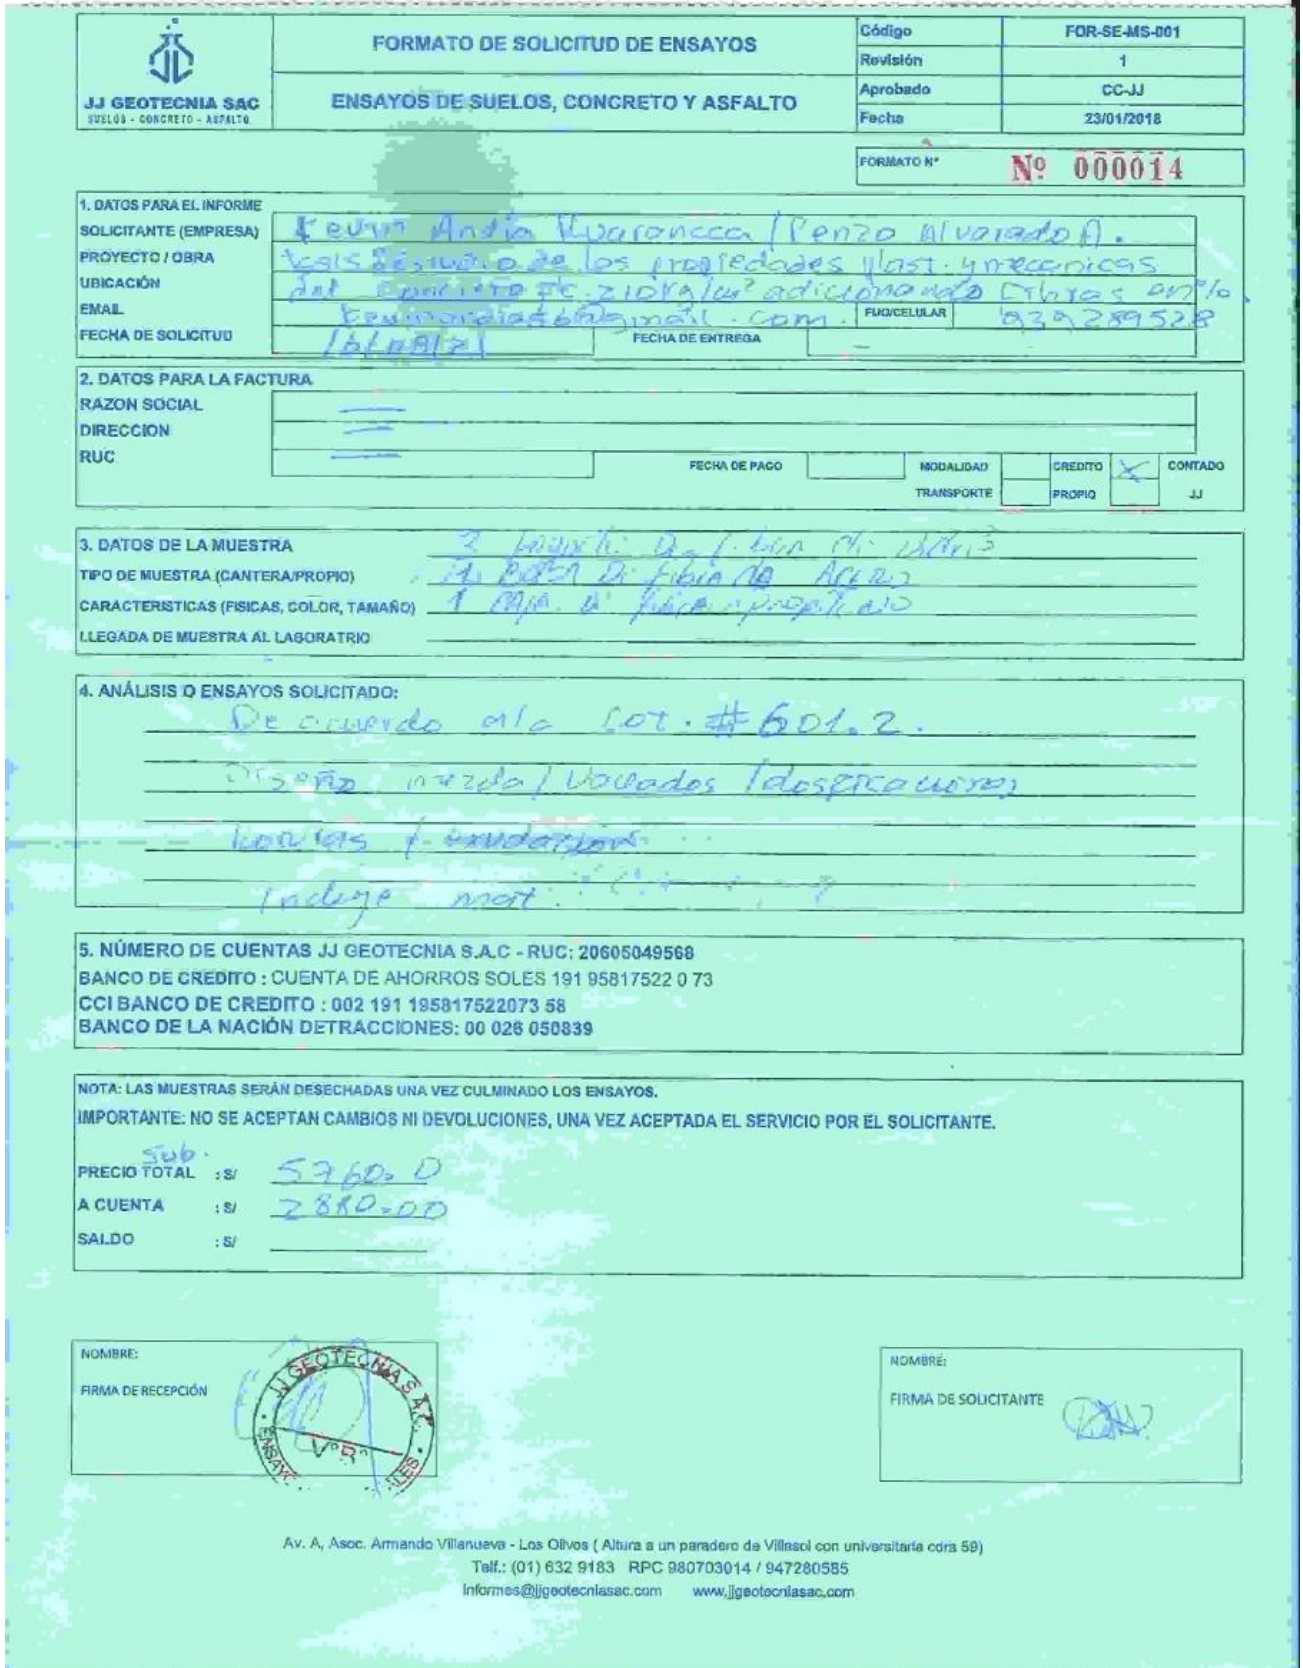 JJ GEOTECNIA SAC
SUELOS - CONCRETO - ASFALTO
FORMATO DE SOLICITUD DE ENSAYOS
ENSAYOS DE SUELOS, CONCRETO Y ASFALTO
Código FOR-SE-MS-001
Revisión 1
Aprobado CC-JJ
Fecha 23/01/2018
FORMATO N° Nº 000014
1. DATOS PARA EL INFORME
SOLICITANTE (EMPRESA) Kevin Andia Huarancca / Renzo Alvarado A.
PROYECTO / OBRA de los propiedades plast. y mecanicas
UBICACIÓN del Concreto fc 210kg/cm² adicionando Fibras en %
EMAIL FIJO/CELULAR 939289528
FECHA DE SOLICITUD 16/08/21 FECHA DE ENTREGA —
2. DATOS PARA LA FACTURA
RAZON SOCIAL
DIRECCION
RUC FECHA DE PAGO MODALIDAD CREDITO X CONTADO
TRANSPORTE PROPIO JJ
3. DATOS DE LA MUESTRA 2
TIPO DE MUESTRA (CANTERA/PROPIO) Bolsa Di Fibra de Acero
CARACTERISTICAS (FISICAS, COLOR, TAMAÑO) 1 caja di
LLEGADA DE MUESTRA AL LABORATRIO
4. ANÁLISIS O ENSAYOS SOLICITADO:
De acuerdo a la Cot. #601.2.
Diseño mezcla / Vaceados / dosificaciones
/ exudazion
Incluye mat.
5. NÚMERO DE CUENTAS JJ GEOTECNIA S.A.C - RUC: 20605049568
BANCO DE CREDITO : CUENTA DE AHORROS SOLES 191 95817522 0 73
CCI BANCO DE CREDITO : 002 191 195817522073 58
BANCO DE LA NACIÓN DETRACCIONES: 00 026 050839
NOTA: LAS MUESTRAS SERÁN DESECHADAS UNA VEZ CULMINADO LOS ENSAYOS.
IMPORTANTE: NO SE ACEPTAN CAMBIOS NI DEVOLUCIONES, UNA VEZ ACEPTADA EL SERVICIO POR EL SOLICITANTE.
sub.
PRECIO TOTAL : S/ 5760.0
A CUENTA : S/ 2880.00
SALDO : S/
NOMBRE:
FIRMA DE RECEPCIÓN
JJ GEOTECNIA S.A.C.
V°B°
NOMBRE:
FIRMA DE SOLICITANTE
Av. A, Asoc. Armando Villanueva - Los Olivos ( Altura a un paradero de Villasol con universitaria cdra 59)
Telf.: (01) 632 9183 RPC 980703014 / 947280585
informes@jjgeotecniasac.com www.jjgeotecniasac.com